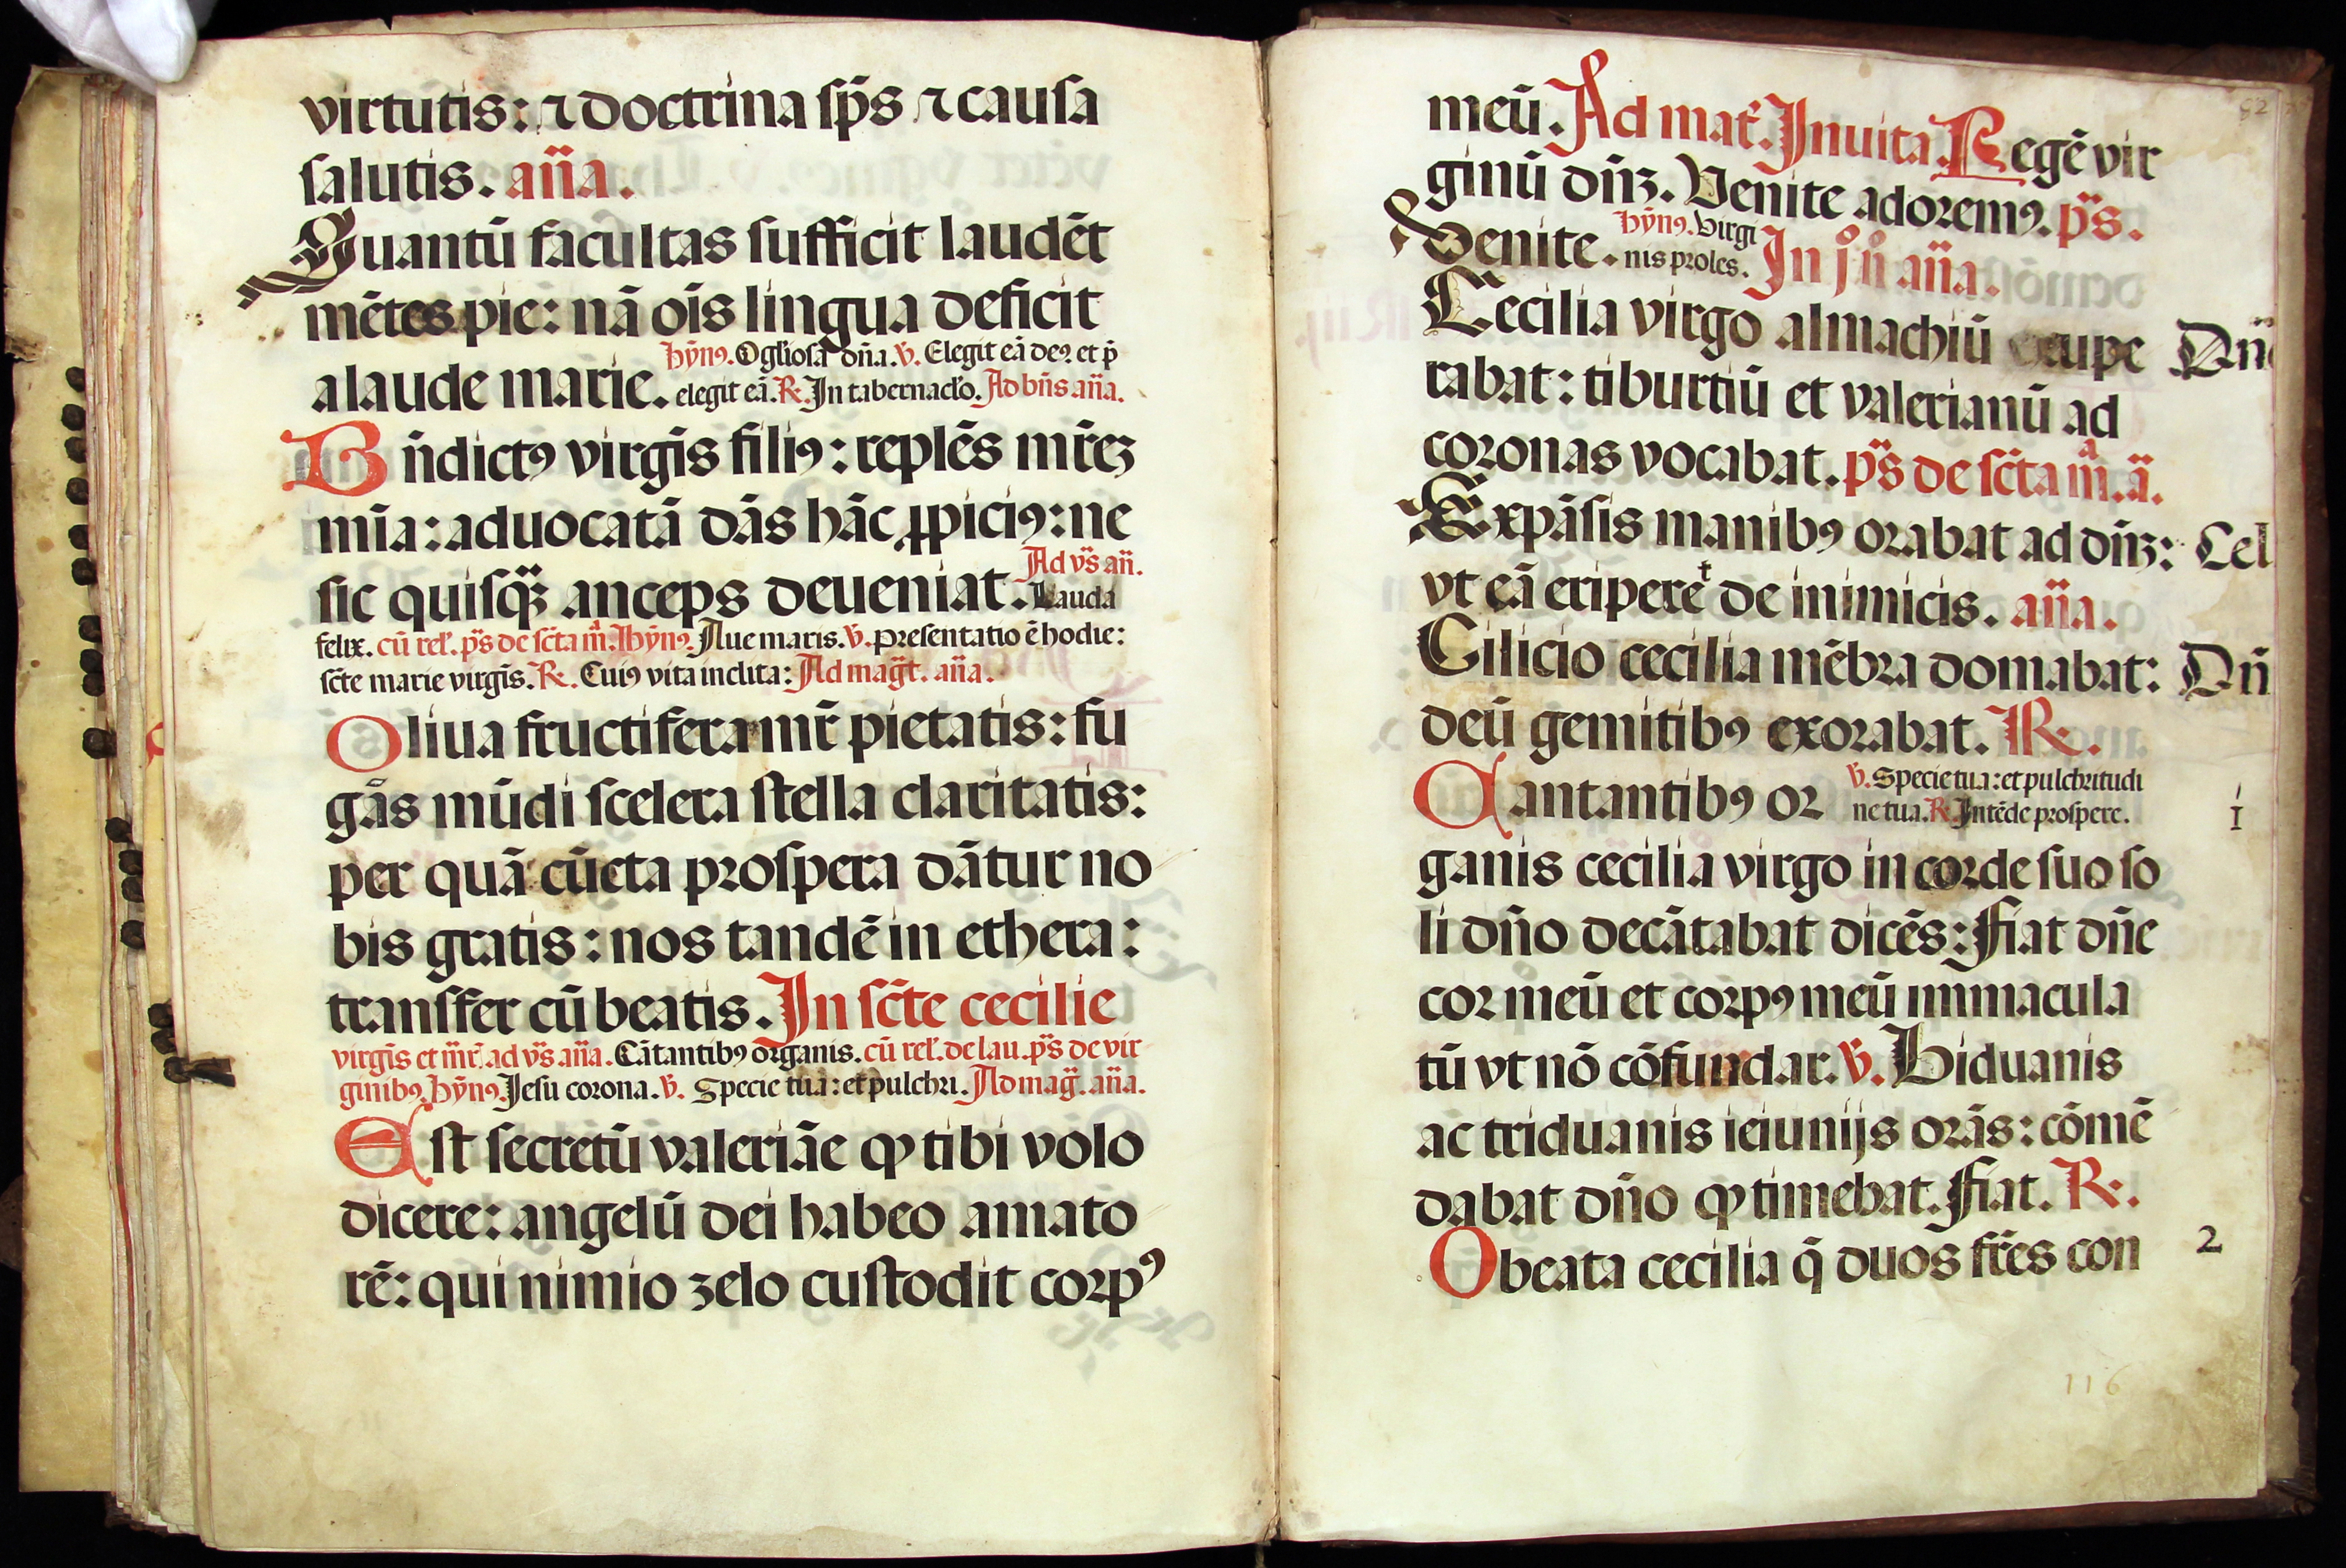 virtutis: ⁊ doctrina ſp̄s ⁊ cauſa
ſalutis. an̄a.
Quantū facultas ſufficit laudēt
mētes pie: nā oīs lingua deficit
a laude marie. hȳnꝰ. O gl̄ioſa dn̄a. ℣. Elegit eā deꝰ. et p̄
elegit eā. ℟. In tabernac̄lo. Ad bn̄s an̄a.
Bn̄dictꝰ virgīs filiꝰ: replēs mr̄eꝫ
mīa: aduocatā dās hāc ꝓpiciꝰ: ne
ſic quiſqꝫ anceps deueniat. Ad vs̄ an̄.
Lauda
felix. cū rel̄. ps̄ de ſc̄ta m̄. hȳnꝰ. Aue maris. ℣. preſentatio ē hodie:
ſc̄te marie virgīs. ℟. Cuiꝰ vita inclita: Ad maḡt. an̄a.
Oliua fructifera mr̄ pietatis: fu
gās mūdi ſcelera ſtella claritatis:
per quā cūcta proſpera dātur no
bis gratis: nos tandē in ethera:
tranſfer cū beatis. In ſc̄te cecilie
virgīs et mr̄. ad vs̄ an̄a. Cātantibꝰ organis. cū rel̄. de lau. ps̄ de vir
ginibꝰ. hȳnꝰ. Jeſu corona. ℣. Specie tua: et pulchri. Ad maḡ. an̄a.
Eſt ſecretū valeriāe ꝙ tibi volo
dicere: angelū dei habeo amato
rē: qui nimio zelo cuſtodit corpꝰ
meū. Ad mat̄. Inuita. Regē vir
ginū dn̄ꝫ. Venite adoremꝰ. ps̄.
Venite. hȳnꝰ. Virgi
nis proles. In j° n° an̄a.
Cecilia virgo almachiū exupe
rabat: tiburtiū et valerianū ad
coronas vocabat. ps̄ de ſc̄ta m̄ª. ā.
Expāſis manibꝰ orabat ad dn̄ꝫ:
vt eā eriperet de inimicis. an̄a.
Cilicio cecilia mēbra domabat:
deū gemitibꝰ exorabat. ℟.
Cantantibꝰ or ℣. Specie tua: et pulchritudi
ne tua. ℟. Intēde proſpere.
1
ganis cecilia virgo in corde ſuo ſo
li dn̄o decātabat dicēs: Fiat dn̄e
cor meū et corpꝰ meū immacula
tū vt nō cōfundar. ℣. Biduanis
ac triduanis ieiunijs orās: cōmē
dabat dn̄o ꝙ timebat. Fiat. ℟.
O beata cecilia q̄ duos fr̄es con
2
116